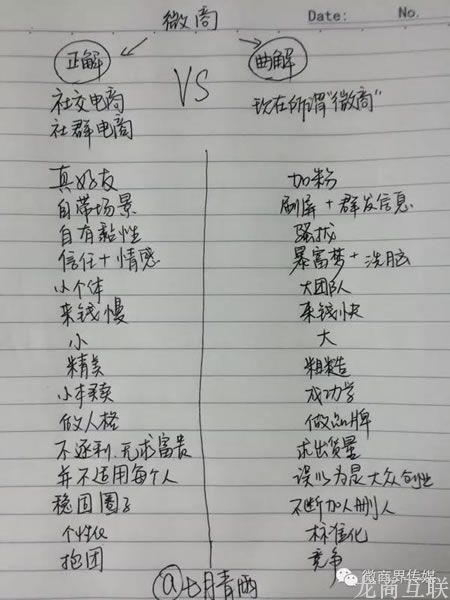 微商
Date:
No.
正解
VS
曲解
社交电商
社群电商
真好友
自带场景
自有黏性
信任+情感
小个体
来钱慢
小
精美
做人格
不逐利.无求富贵
并不适用每个人
稳固圈子
个性化
抱团
现在所谓"微商"
加粉
刷屏+群发信息
骚扰
暴富梦+洗脑
大团队
来钱快
大
粗糙
成功学
做品牌
求出货量
误以为是大众创业
不断加人删人
标准化
竞争
@七月青雨
微商界传媒
龙商互联